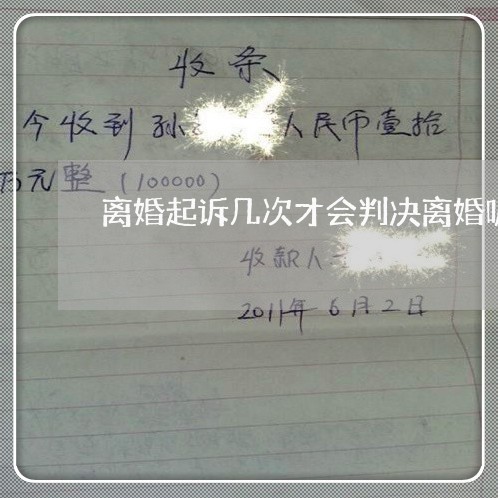 收条
今收到孙 人民币壹拾
万元整(100000)
离婚起诉几次才会判决离婚
收款人
2011年6月2日